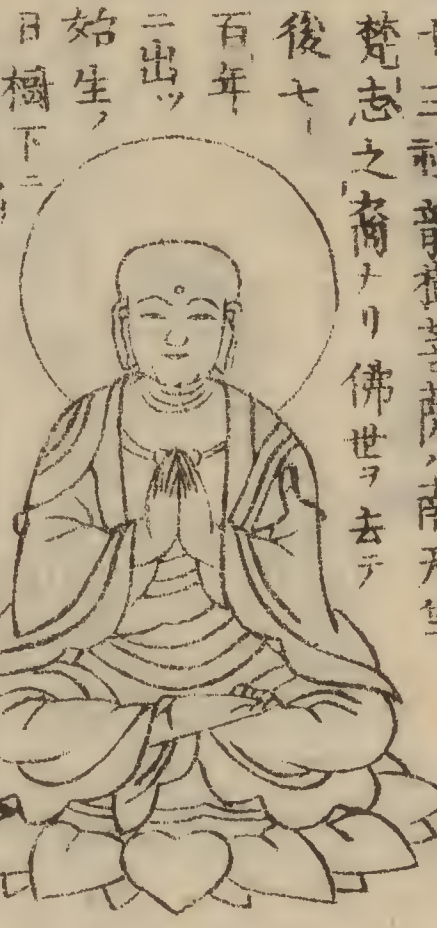 十三祖龍樹菩薩ハ南天竺
梵志之裔ナリ佛世ヲ去テ
後七
百年
ニ出ッ
始生ノ
日樹下ニ